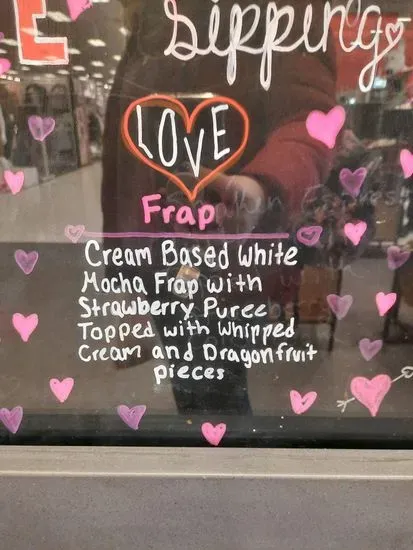 E
Sipping
LOVE
Frap
Cream Based White
Mocha Frap with
Strawberry Puree
Topped with Whipped
Cream and Dragonfruit
pieces